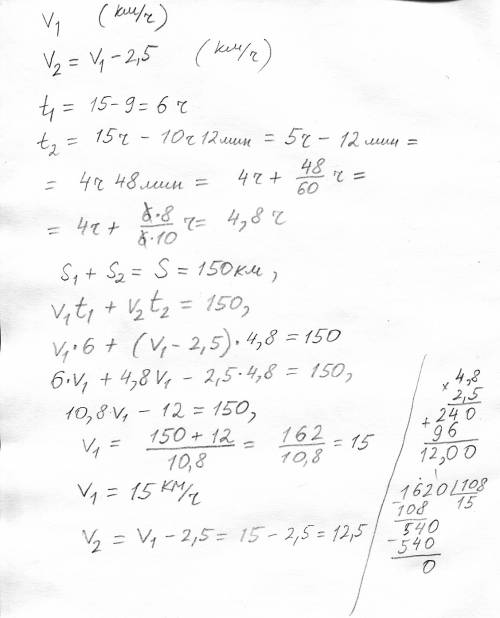 V₁ (км/ч)
V₂ = V₁ - 2,5 (км/ч)
t₁ = 15 - 9 = 6 ч
t₂ = 15ч - 10ч 12мин = 5ч - 12мин =
= 4ч 48мин = 4ч + 48/60 ч =
= 4ч + 6·8/6·10 ч = 4,8 ч
S₁ + S₂ = S = 150км,
V₁t₁ + V₂t₂ = 150,
V₁·6 + (V₁ - 2,5)·4,8 = 150
6·V₁ + 4,8V₁ - 2,5·4,8 = 150,
10,8·V₁ - 12 = 150,
V₁ = 150 + 12/10,8 = 162/10,8 = 15
V₁ = 15 км/ч
V₂ = V₁ - 2,5 = 15 - 2,5 = 12,5
× 4,8
2,5
+ 240
96
12,00
1620 108
- 108 15
540
- 540
0